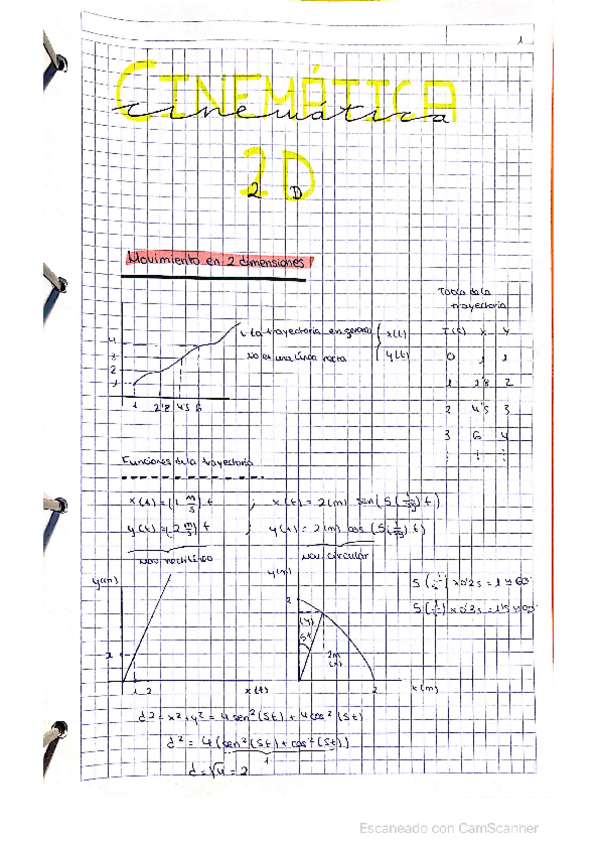 1
CINEMÁTICA
cinemática
2D
2 D
Movimiento en 2 dimensiones
Tabla de la
trayectoria
T(s) x y
0 1 1
1 2'8 2
2 4'5 3
3 6 4
⋮ ⋮ ⋮
La trayectoria en general { x(t)
No es una línea recta { y(t)
4
3
2
1
1 2'8 4'5 6
Funciones de la trayectoria
x(t) = (1 m/s) t ; x(t) = 2(m) sen(5(1/s) t)
y(t) = (2 m/s) t ; y(t) = 2(m) cos(5(1/s) t)
Mov. rectilíneo Mov. circular
5(1/s) x 0'2s = 1 ≈ 60°
5(1/s) x 0'3s = 1'5 ≈ 90°
y(m) y(m)
2
(y)
5t
2m
(x)
1 2 x(t) 2 x(m)
d2 = x² + y² = 4 sen²(5t) + 4 cos²(5t)
d² = 4(sen²(5t) + cos²(5t))
1
d = √4 = 2
Escaneado con CamScanner